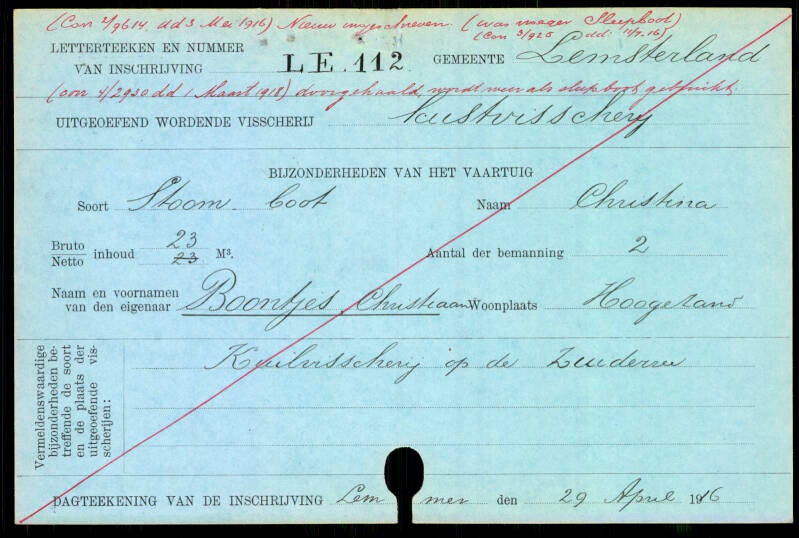 (Con 2/9614. dd 3 Mei 1916) Nieuw ingeschreven. (was vroeger Sleepboot)
(Con 3/925 dd: 11/7.16)
LETTERTEEKEN EN NUMMER
VAN INSCHRIJVING LE. 112 GEMEENTE Lemsterland
(con 4/2930 dd 1 Maart 1918) doorgehaald, wordt weer als sleepboot gebruikt.
UITGEOEFEND WORDENDE VISSCHERIJ Kustvisscherij
BIJZONDERHEDEN VAN HET VAARTUIG
Soort Stoom boot Naam Christina
Bruto 23
Netto inhoud 23 M³. Aantal der bemanning 2
Naam en voornamen
van den eigenaar Boontjes, Christiaan Woonplaats Hoogezand
Vermeldenswaardige
bijzonderheden be-
treffende de soort
en de plaats der
uitgeoefende vis-
scherijen:
Kuilvisscherij op de Zuiderzee
DAGTEEKENING VAN DE INSCHRIJVING Lemmer den 29 April 1916